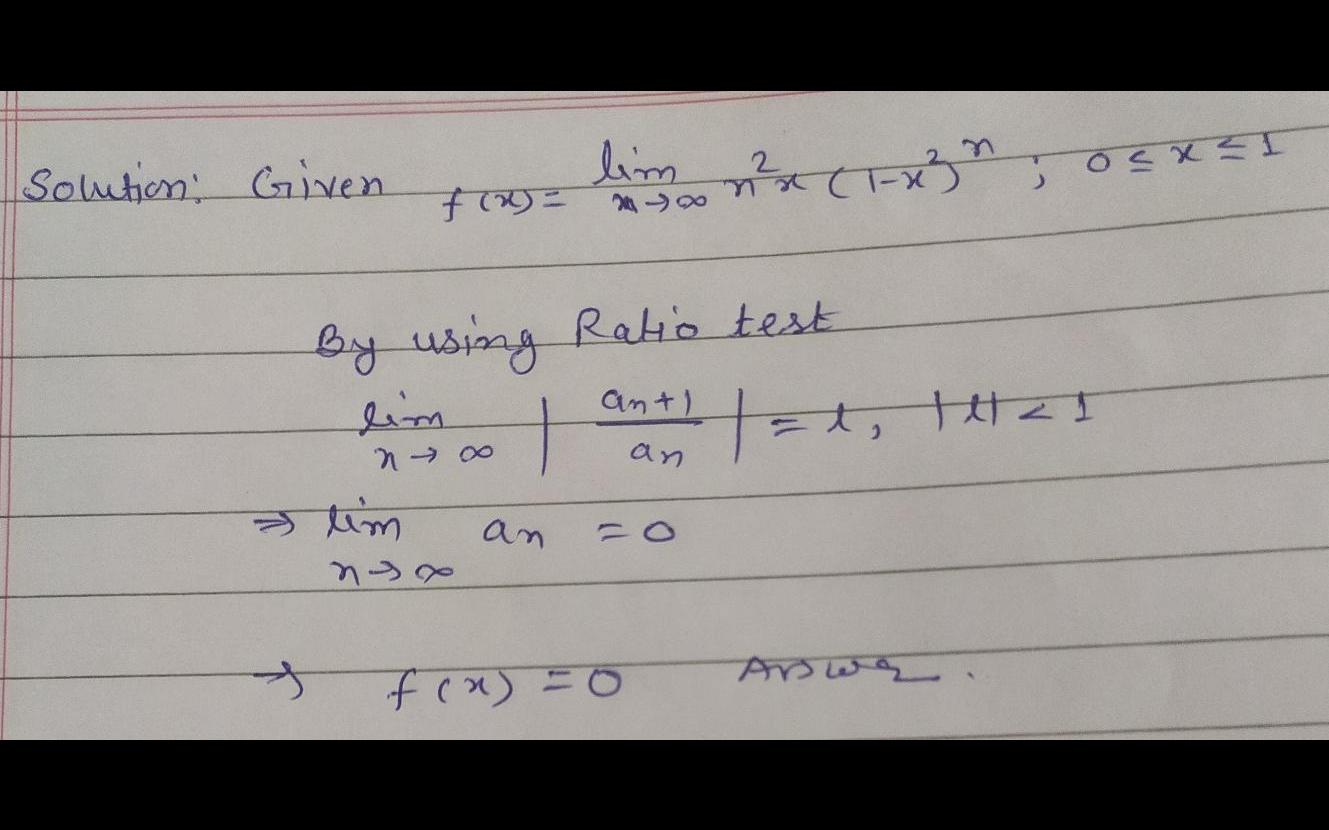 Solution: Given f(x) = lim n→∞ n²x (1-x²)ⁿ ; 0 ≤ x ≤ 1
By using Ratio test
lim n→∞ | an+1 / an | = l, |l| < 1
⇒ lim n→∞ an = 0
⇒ f(x) = 0 Answer.